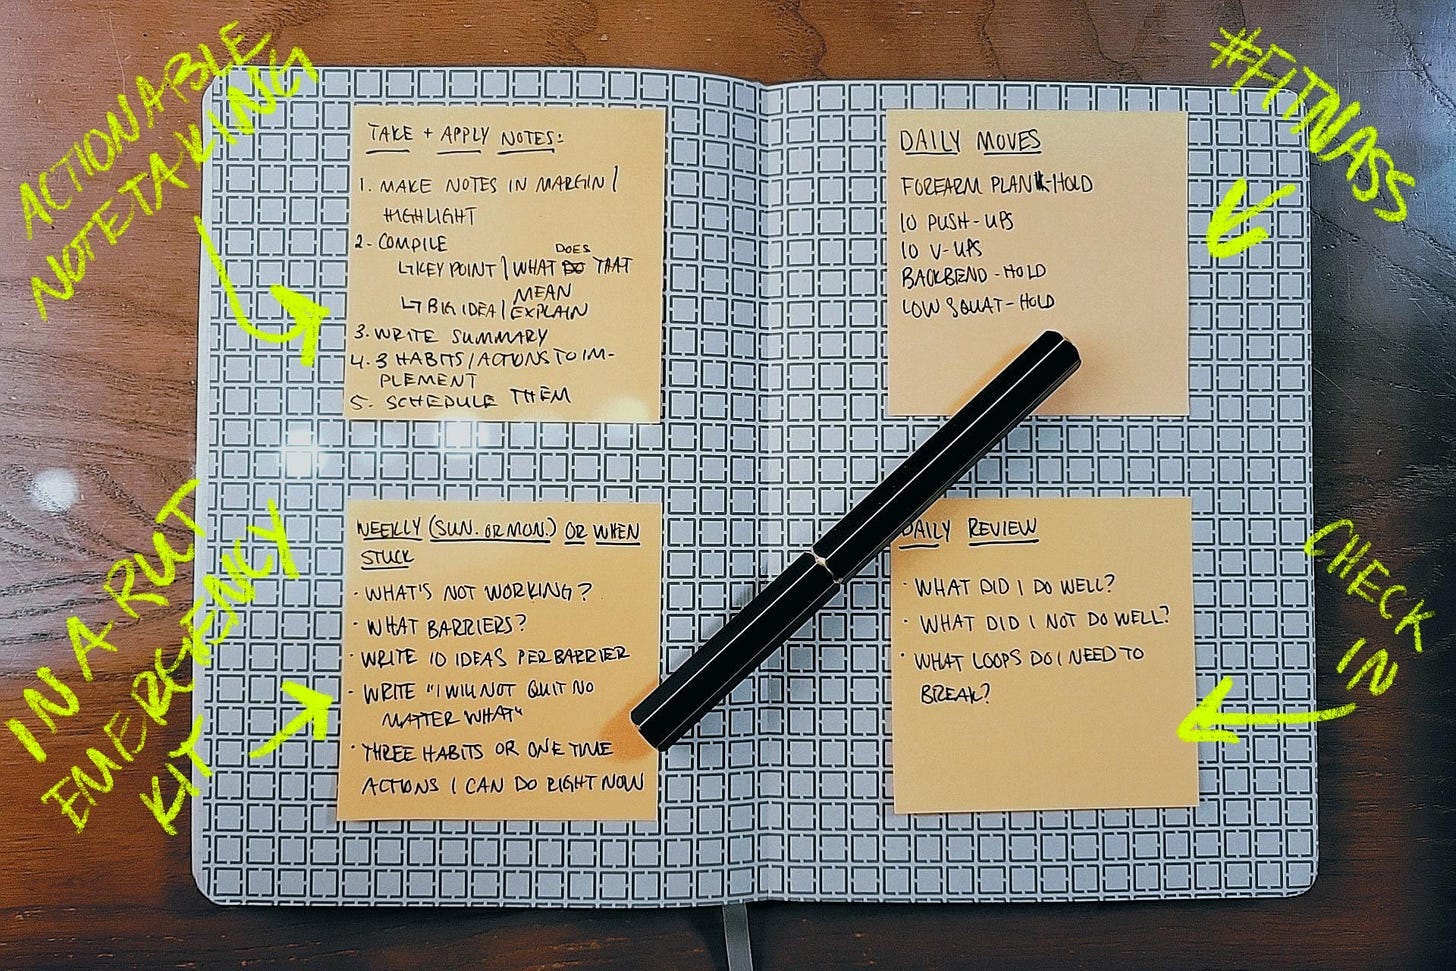 ACTIONABLE
NOTETAKING
TAKE + APPLY NOTES:
1. MAKE NOTES IN MARGIN/
HIGHLIGHT
2- COMPILE
↳KEY POINT | WHAT DOES THAT
MEAN
↳BIG IDEA | EXPLAIN
3. WRITE SUMMARY
4. 3 HABITS/ACTIONS TO IM-
PLEMENT
5. SCHEDULE THEM
#FITNASS
DAILY MOVES
FOREARM PLANK-HOLD
10 PUSH-UPS
10 V-UPS
BACKBEND-HOLD
LOW SQUAT-HOLD
IN A RUT
EMERGENCY
KIT
WEEKLY (SUN. OR MON.) OR WHEN
STUCK
· WHAT'S NOT WORKING?
· WHAT BARRIERS?
· WRITE 10 IDEAS PER BARRIER
· WRITE "I WILL NOT QUIT NO
MATTER WHAT"
· THREE HABITS OR ONE TIME
ACTIONS I CAN DO RIGHT NOW
CHECK
IN
DAILY REVIEW
· WHAT DID I DO WELL?
· WHAT DID I NOT DO WELL?
· WHAT LOOPS DO I NEED TO
BREAK?